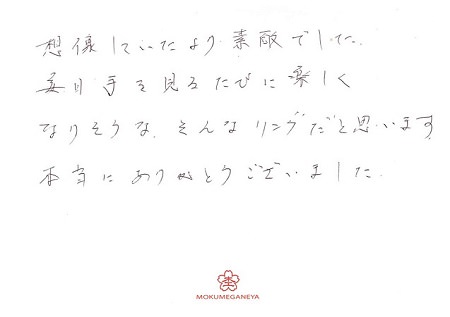 想像していたより素敵でした。
毎日手を見るたびに楽しく
なりそうな、そんなリングだと思います
本当にありがとうございました。
MOKUMEGANEYA